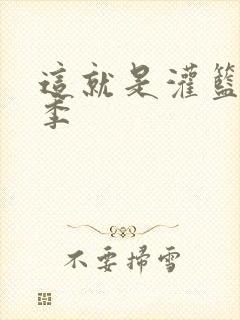 這就是灌籃
季
不要掃雪